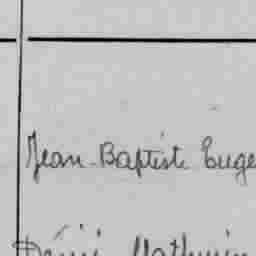 Jean-Baptiste Euge
Désiré Mathurin